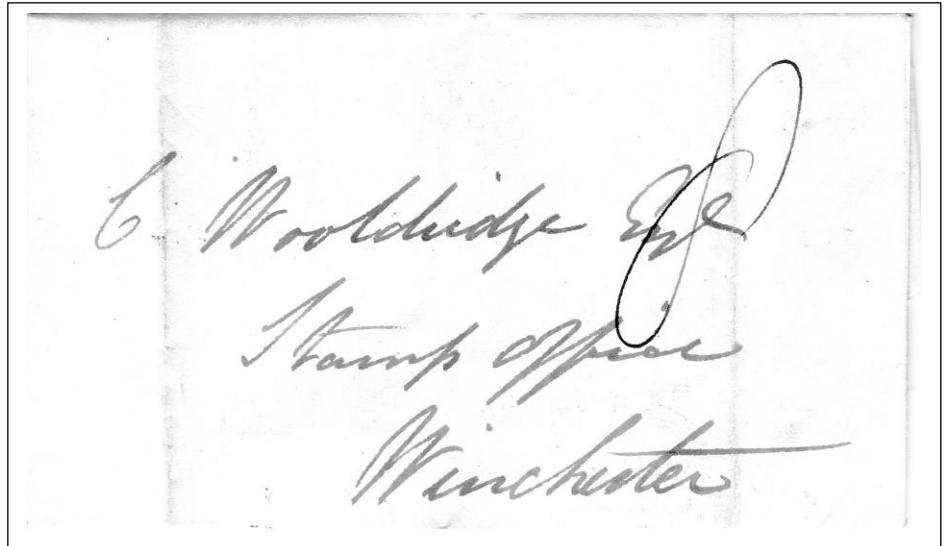 C. Wooldridge Esqe
8
Stamp Office
Winchester